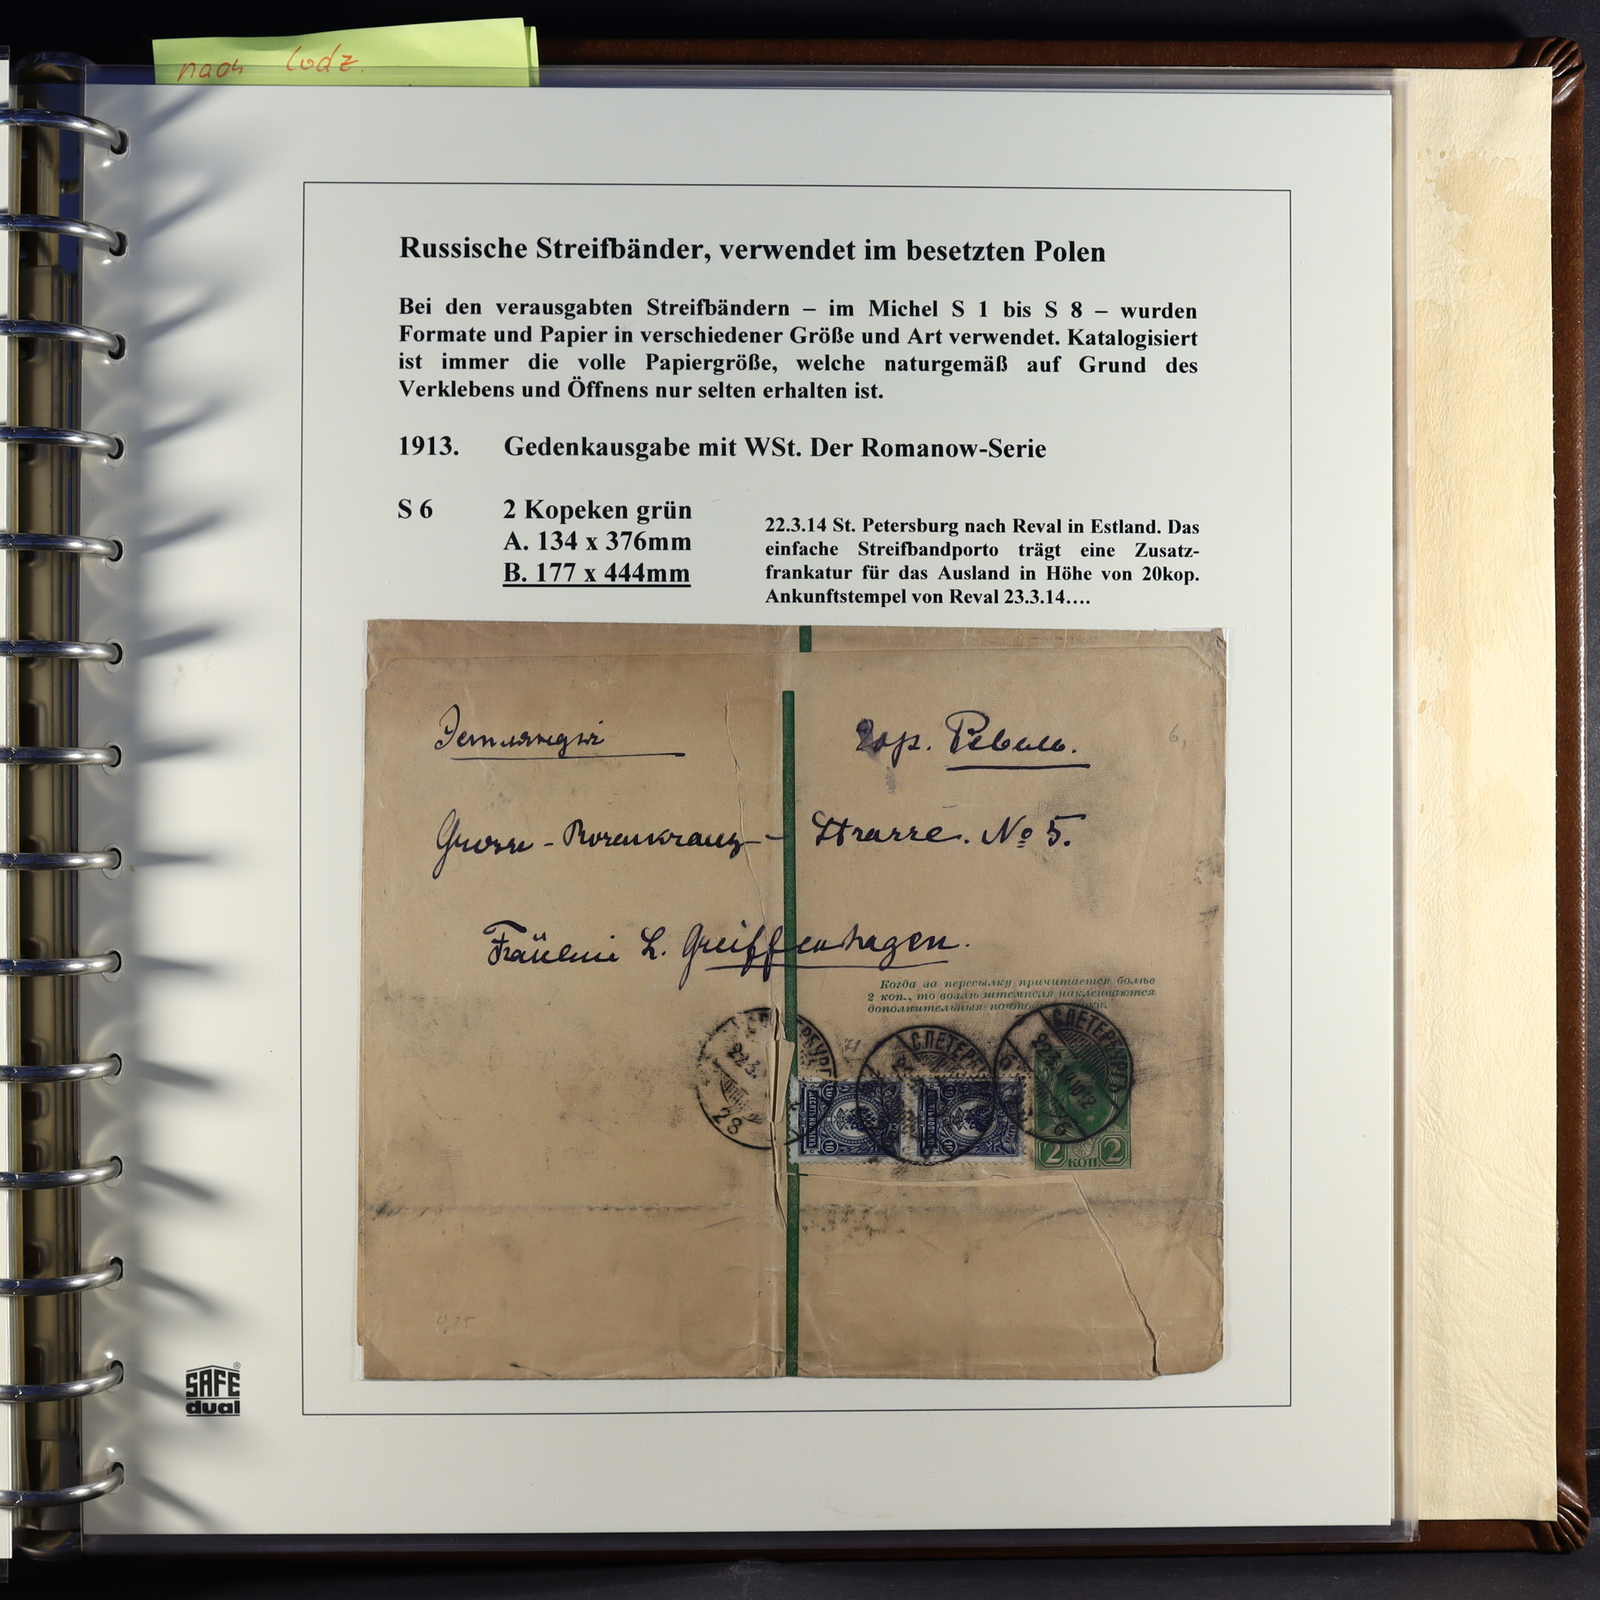 nach Lodz.
Russische Streifbänder, verwendet im besetzten Polen
Bei den verausgabten Streifbändern – im Michel S 1 bis S 8 – wurden
Formate und Papier in verschiedener Größe und Art verwendet. Katalogisiert
ist immer die volle Papiergröße, welche naturgemäß auf Grund des
Verklebens und Öffnens nur selten erhalten ist.
1913. Gedenkausgabe mit WSt. Der Romanow-Serie
S 6 2 Kopeken grün
A. 134 x 376mm
B. 177 x 444mm
22.3.14 St. Petersburg nach Reval in Estland. Das
einfache Streifbandporto trägt eine Zusatz-
frankatur für das Ausland in Höhe von 20kop.
Ankunftstempel von Reval 23.3.14….
Эстляндiя гор. Ревель.
6,
Gross - Rosenkranz - Strasse. № 5.
Fräulein L. Greiffenhagen.
Когда за пересылку причитается болѣе
2 коп., то возлѣ штемпеля наклеиваются
дополнительныя
С.ПЕТЕРБУРГ
22.3.
28
С.ПЕТЕРБУРГ
10 10
10 10
С.ПЕТЕРБУРГЪ
22.3.14
2 КОП 2
SAFE ®
dual